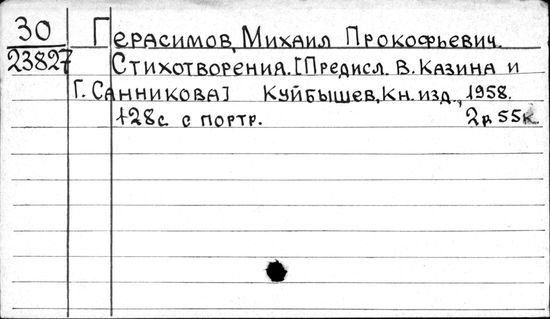 30 Герасимов, Михаил Прокофьевич.
23827 Стихотворения. [Предисл. В. Казина и
Г. Санникова] Куйбышев, Кн. изд., 1958.
128 с. с портр. 2р 55к.